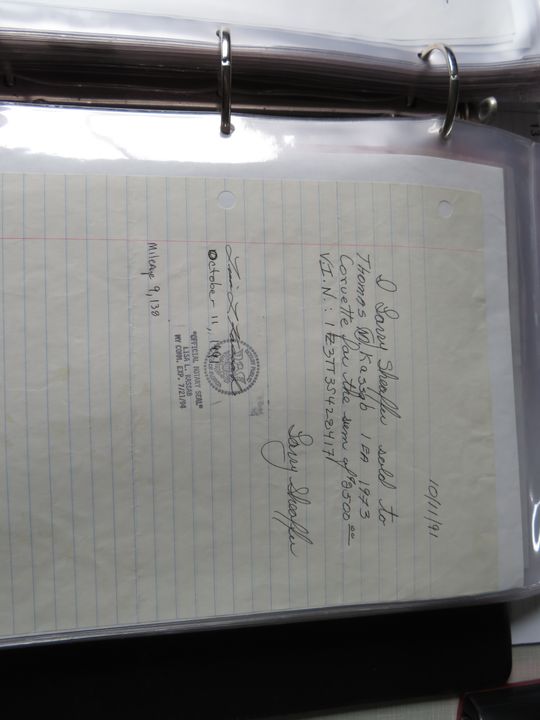 10/11/91
I Larry Sheaffer sold to
Thomas M. Kassab 1 EA 1973
Corvette for the sum of $2500.00
V.I.N.:
Larry Sheaffer
October 11, 1991
"OFFICIAL NOTARY SEAL"
LISA L. KASSAB
MY COM. EXP. 7/21/94
Mileage 9,138